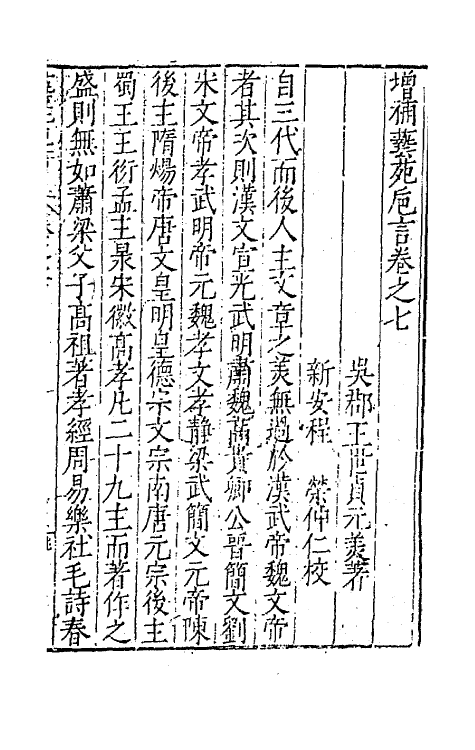 增補藝苑卮言卷之七
吳郡王世貞元美著
新安程　榮仲仁校
自三代而後人主文章之美無過於漢武帝魏文帝
者其次則漢文宣光武明肅魏高貴鄉公晉簡文劉
宋文帝孝武明帝元魏孝文孝靜梁武簡文元帝陳
後主隋煬帝唐文皇明皇德宗文宗南唐元宗後主
蜀王王衍孟主昶宋徽高孝凡二十九主而著作之
盛則無如蕭梁父子高祖著孝經周易樂社毛詩春